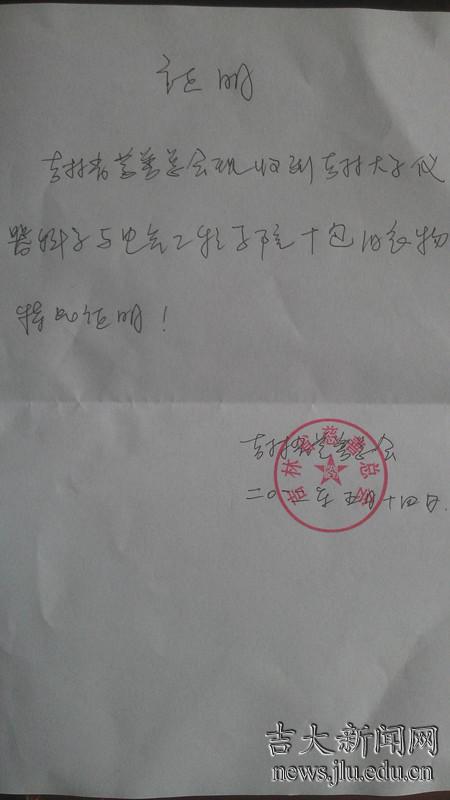 证明
吉林省慈善总会现收到吉林大学仪
器科学与电气工程学院十包旧衣物
特此证明！
吉林省慈善总会
二〇一二年五月十四日
吉林省慈善总会
吉大新闻网
news.jlu.edu.cn